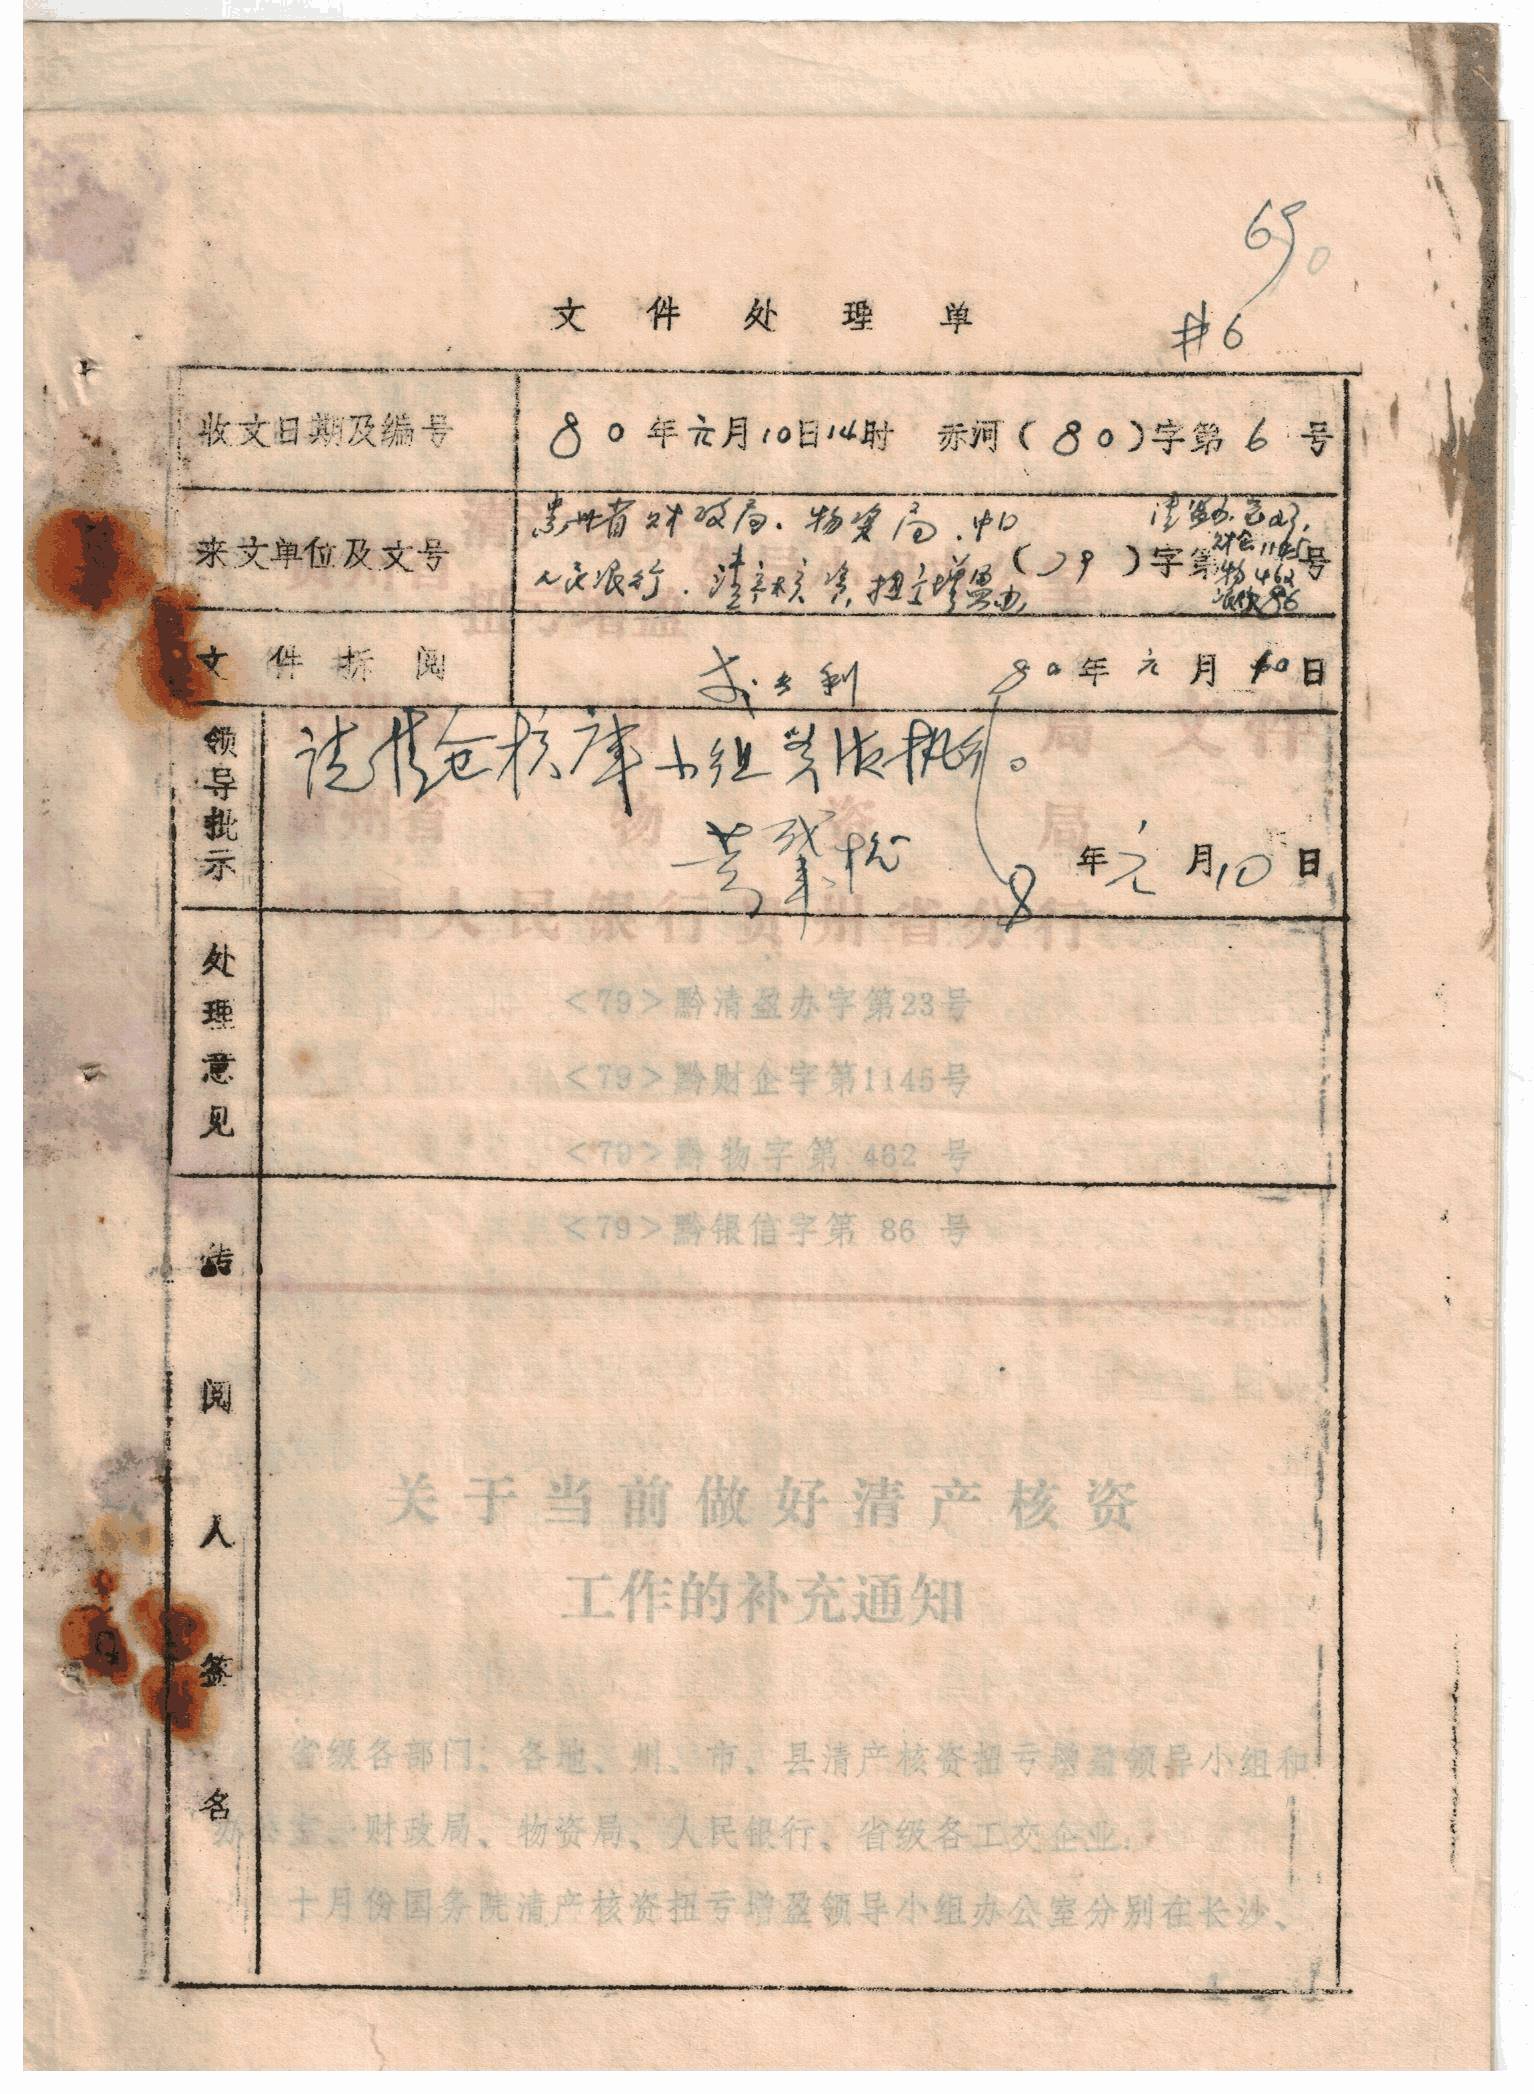 69
#6
文件处理单
收文日期及编号 80年元月10日14时 赤河(80)字第6号
来文单位及文号 贵州省财政局、物资局、中囗 清盈办字23,
财企1145
人民银行、清产核资,扭亏增盈办, (79)字第号
物462
银信86
文件拆阅 80年元月10日
领导批示 请清仓核库小组贯彻执行。
黄 松 80年元月10日
局文件
贵州省物资局
中国人民银行贵州省分行
处理意见
<79>黔清盈办字第23号
<79>黔财企字第1145号
<79>黔物字第 462 号
<79>黔银信字第 86 号
传阅人签名
关于当前做好清产核资
工作的补充通知
省级各部门、各地、州、市、县清产核资扭亏增盈领导小组和
办公室、财政局、物资局、人民银行、省级各工交企业:
十月份国务院清产核资扭亏增盈领导小组办公室分别在长沙、